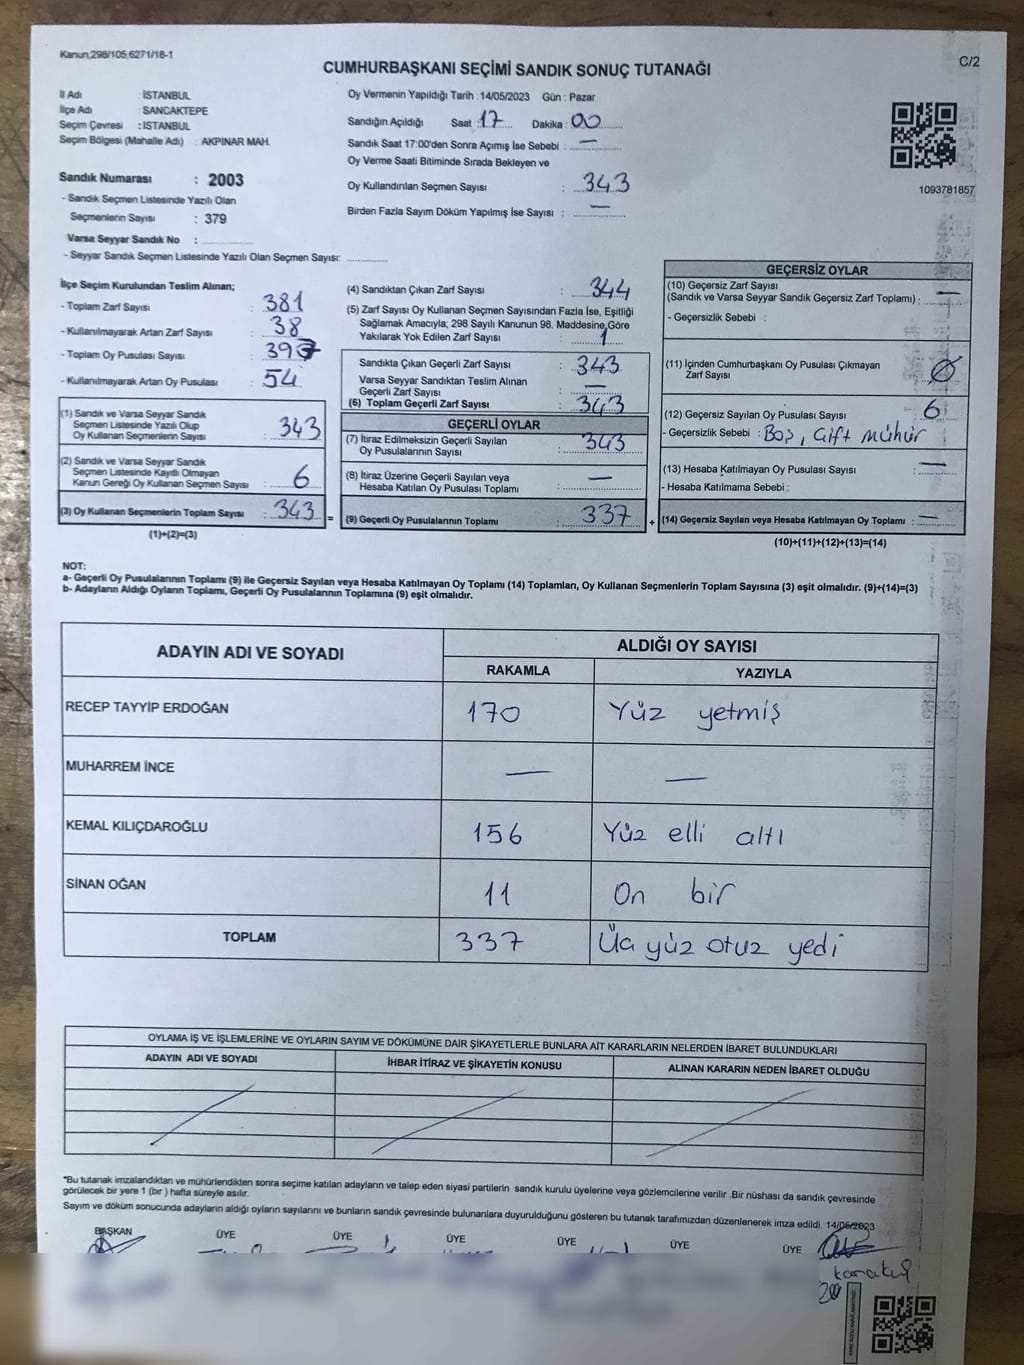 Kanun,298/105,6271/18-1
C/2
CUMHURBAŞKANI SEÇİMİ SANDIK SONUÇ TUTANAĞI
İl Adı : İSTANBUL
İlçe Adı : SANCAKTEPE
Seçim Çevresi : İSTANBUL
Seçim Bölgesi (Mahalle Adı) : AKPINAR MAH.
Sandık Numarası : 2003
- Sandık Seçmen Listesinde Yazılı Olan
Seçmenlerin Sayısı : 379
Varsa Seyyar Sandık No :
- Seyyar Sandık Seçmen Listesinde Yazılı Olan Seçmen Sayısı:
Oy Vermenin Yapıldığı Tarih : 14/05/2023 Gün : Pazar
Sandığın Açıldığı Saat : 17 Dakika : 00
Sandık Saat 17:00'den Sonra Açımış İse Sebebi : —
Oy Verme Saati Bitiminde Sırada Bekleyen ve
Oy Kullandırılan Seçmen Sayısı : 343
Birden Fazla Sayım Döküm Yapılmış İse Sayısı : —
1093781857
İlçe Seçim Kurulundan Teslim Alınan;
- Toplam Zarf Sayısı : 381
- Kullanılmayarak Artan Zarf Sayısı : 38
- Toplam Oy Pusulası Sayısı : 397
- Kullanılmayarak Artan Oy Pusulası : 54
(1) Sandık ve Varsa Seyyar Sandık
Seçmen Listesinde Yazılı Olup
Oy Kullanan Seçmenlerin Sayısı : 343
(2) Sandık ve Varsa Seyyar Sandık
Seçmen Listesinde Kayıtlı Olmayan
Kanun Gereği Oy Kullanan Seçmen Sayısı : 6
(3) Oy Kullanan Seçmenlerin Toplam Sayısı : 343 =
(1)+(2)=(3)
(4) Sandıktan Çıkan Zarf Sayısı : 344
(5) Zarf Sayısı Oy Kullanan Seçmen Sayısından Fazla İse, Eşitliği
Sağlamak Amacıyla; 298 Sayılı Kanunun 98. Maddesine Göre
Yakılarak Yok Edilen Zarf Sayısı : 1
Sandıkta Çıkan Geçerli Zarf Sayısı : 343
Varsa Seyyar Sandıktan Teslim Alınan
Geçerli Zarf Sayısı : —
(6) Toplam Geçerli Zarf Sayısı : 343
GEÇERLİ OYLAR
(7) İtiraz Edilmeksizin Geçerli Sayılan
Oy Pusulalarının Sayısı : 343
(8) İtiraz Üzerine Geçerli Sayılan veya
Hesaba Katılan Oy Pusulası Toplamı : —
(9) Geçerli Oy Pusulalarının Toplamı : 337 +
GEÇERSİZ OYLAR
(10) Geçersiz Zarf Sayısı
(Sandık ve Varsa Seyyar Sandık Geçersiz Zarf Toplamı) : —
- Geçersizlik Sebebi :
(11) İçinden Cumhurbaşkanı Oy Pusulası Çıkmayan
Zarf Sayısı : Ø
(12) Geçersiz Sayılan Oy Pusulası Sayısı : 6
- Geçersizlik Sebebi : Boş, Çift mühür
(13) Hesaba Katılmayan Oy Pusulası Sayısı : —
- Hesaba Katılmama Sebebi :
(14) Geçersiz Sayılan veya Hesaba Katılmayan Oy Toplamı : —
(10)+(11)+(12)+(13)=(14)
NOT:
a- Geçerli Oy Pusulalarının Toplamı (9) ile Geçersiz Sayılan veya Hesaba Katılmayan Oy Toplamı (14) Toplamları, Oy Kullanan Seçmenlerin Toplam Sayısına (3) eşit olmalıdır. (9)+(14)=(3)
b- Adayların Aldığı Oyların Toplamı, Geçerli Oy Pusulalarının Toplamına (9) eşit olmalıdır.
ADAYIN ADI VE SOYADI ALDIĞI OY SAYISI
RAKAMLA YAZIYLA
RECEP TAYYİP ERDOĞAN 170 Yüz yetmiş
MUHARREM İNCE — —
KEMAL KILIÇDAROĞLU 156 Yüz elli altı
SİNAN OĞAN 11 On bir
TOPLAM 337 Üç yüz otuz yedi
OYLAMA İŞ VE İŞLEMLERİNE VE OYLARIN SAYIM VE DÖKÜMÜNE DAİR ŞİKAYETLERLE BUNLARA AİT KARARLARIN NELERDEN İBARET BULUNDUKLARI
ADAYIN ADI VE SOYADI İHBAR İTİRAZ VE ŞİKAYETİN KONUSU ALINAN KARARIN NEDEN İBARET OLDUĞU
*Bu tutanak imzalandıktan ve mühürlendikten sonra seçime katılan adayların ve talep eden siyasi partilerin sandık kurulu üyelerine veya gözlemcilerine verilir .Bir nüshası da sandık çevresinde
görülecek bir yere 1 (bir ) hafta süreyle asılır.
Sayım ve döküm sonucunda adayların aldığı oyların sayılarını ve bunların sandık çevresinde bulunanlara duyurulduğunu gösteren bu tutanak tarafımızdan düzenlenerek imza edildi. 14/05/2023
BAŞKAN ÜYE ÜYE ÜYE ÜYE ÜYE ÜYE